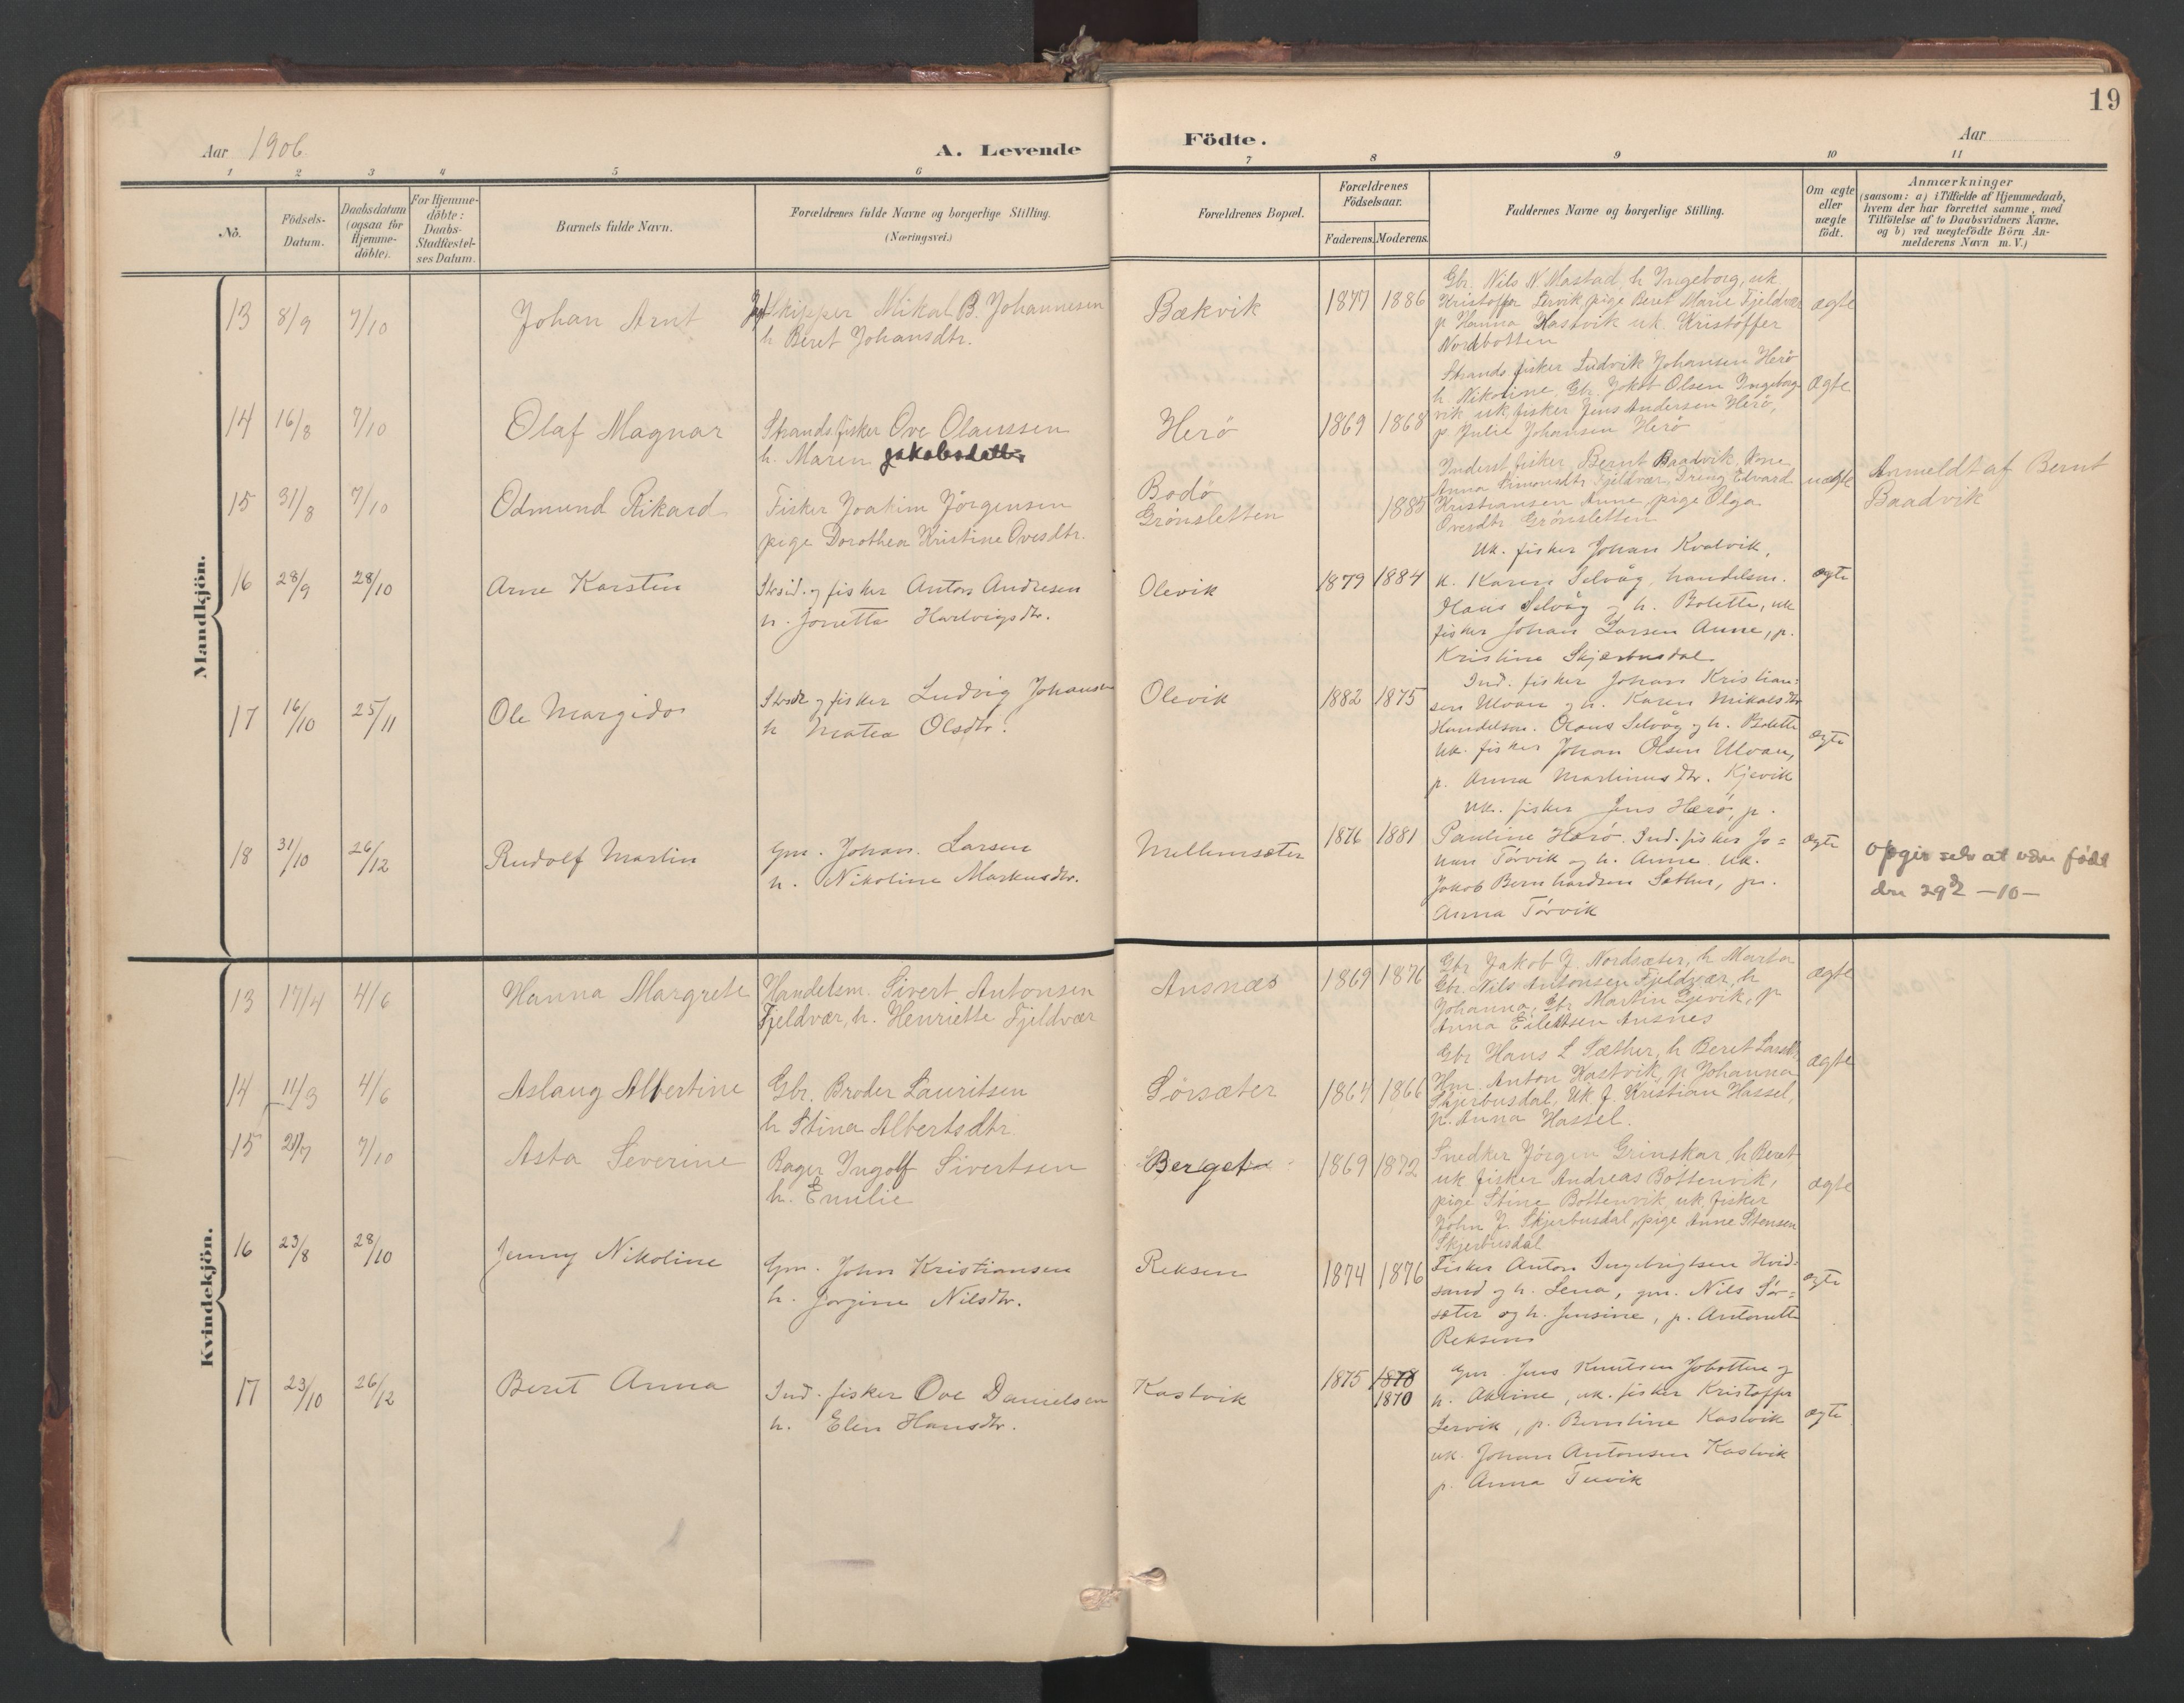 19
Aar 1906
A. Levende Födte.
Aar
1 2 3 4 5 6 7 8 9 10 11
No.
Födsels-Datum.
Daabsdatum (ogsaa for Hjemme-döbte).
For Hjemme-döbte: Daabs-Stadfæstel-ses Datum.
Barnets fulde Navn.
Forældrenes fulde Navne og borgerlige Stilling. (Næringsvei.)
Forældrenes Bopæl.
Forældrenes Födselsaar.
Faderens. Moderens.
Faddernes Navne og borgerlige Stilling.
Om ægte eller uægte födt.
Anmærkninger
(saasom: a) i Tilfælde af Hjemmedaab,
hvem der har forrettet samme, med
Tilföielse af to Daabsvidners Navne,
og b) ved uægtefödte Börn An-
melderens Navn m. V.)
Mandkjön.
13 8/9 7/10 Johan Arnt
Skipper Mikal B. Johannesen
h Beret Johansdtr.
Bækvik 1877 1886
Gbr. Nils N. Mastad, h Ingeborg, uk.
Kristoffer Lervik, pige Beret Marie Fjeldvær
p Hanna Kastvik uk. Kristoffer
Nordbotten
ægte
14 16/8 7/10 Olaf Magnar
Strands. fisker Ove Olaussen
h. Maren Jakobsdatter
Herö 1869 1868
Strands. fisker Ludvik Johansen Herö
h. Nikoline, Gbr. Jakob Olsen Ingeborg-
vik, uk. fisker Jens Andersen Herö,
p. Julie Johansen Herö
Ægte
15 31/8 7/10 Odmund Rikard
Fisker Joakim Jörgensen
pige Dorothea Kristine Ovesdtr.
Bodö
Grönsletten
1885
Inderst fisker Bernt Baadvik, Kone
Anna Simonsdtr Fjeldvær, Dreng Edvard
Kristiansen Aune, pige Olga
Ovesdtr. Grönsletten
uægte
Anmeldt af Bernt
Baadvik
16 28/9 28/10 Arne Karsten
Strsid. og fisker Anton Andresen
h. Jonetta Hartvigsdtr.
Olevik 1879 1884
Uk. fisker Johan Kvalvik,
k. Karen Selvåg, handelsm.
Olaus Selvåg og h. Bolette, uk
fisker Johan Larsen Aune, p.
Kristine Skjærbusdal.
ægte
17 16/10 25/11 Ole Margido
Strsid og fisker Ludvig Johansen
h Matea Olsdtr.
Olevik 1882 1875
Ind. fisker Johan Kristian-
sen Ulvan og h. Karen Mikalsdtr
Handelsm. Olaus Selvåg og h. Bolette
uk. fisker Johan Olsen Ulvan,
p. Anna Martinusdtr. Kjervik
ægte
18 31/10 26/12 Rudolf Martin
Gm. Johan Larsen
h. Nikoline Markusdtr.
Mellemsæter 1876 1881
Uk. fisker Jens Hærö, p.
Pauline Hærö. Ind. fisker Jo=
han Törvik og h. Anne. Uk.
Jakob Bernhardsen Sæther, p.
Anna Törvik
ægte
opgir selv at være født
den 29de -10-
Kvindekjön.
13 17/4 4/6 Hanna Margrete
Handelsm. Sivert Antonsen
Fjeldvær, h. Henriette Fjeldvær
Ansnæs 1869 1876
Gbr Jakob J. Nordsæter, h Marta
Gbr. Nils Antonsen Fjeldvær, h
Johanna, Gbr. Martin Gjevik, p
Anna Eilertsen Ansnes
ægte
14 11/3 4/6 Aslaug Albertine
Gbr. Broder Lauritsen
h Stina Albertsdtr.
Sörsæter 1864 1866
Gbr Hans L Sæther, h Beret Larsdtr
Hm. Anton Kastvik, p Johanna
Skjerbusdal, Uk. f. Kristian Hassel,
p. Anna Hassel.
ægte
15 21/7 7/10 Asta Severine
Bager Ingolf Sivertsen
h. Emilie
Berget 1869 1872
Snedker Jörgen Grinskar, h Beret
uk fisker Andreas Bottenvik,
pige Stine Bottenvik, uk. fisker
John J. Skjerbusdal, pige Anne Stensen
Skjerbusdal
ægte
16 23/8 28/10 Jenny Nikoline
Gm. John Kristiansen
h. Jorgine Nilsdtr.
Reksen 1874 1876
Fisker Anton Ingebrigtsen Hvid-
sand og h. Lena, gm. Nils Sör=
sæter og h. Jensine, p. Antonette
Reksen
ægte
17 23/10 26/12 Beret Anna
Ind. fisker Ove Danielsen
h. Elen Hansdtr.
Kastvik 1875 1878
1870
Gm. Jens Knutsen Jobotten og
h. Akrine, uk. fisker Kristoffer
Lervik, p. Berntine Kastvik
uk. Johan Antonsen Kastvik
p. Anna
ægte